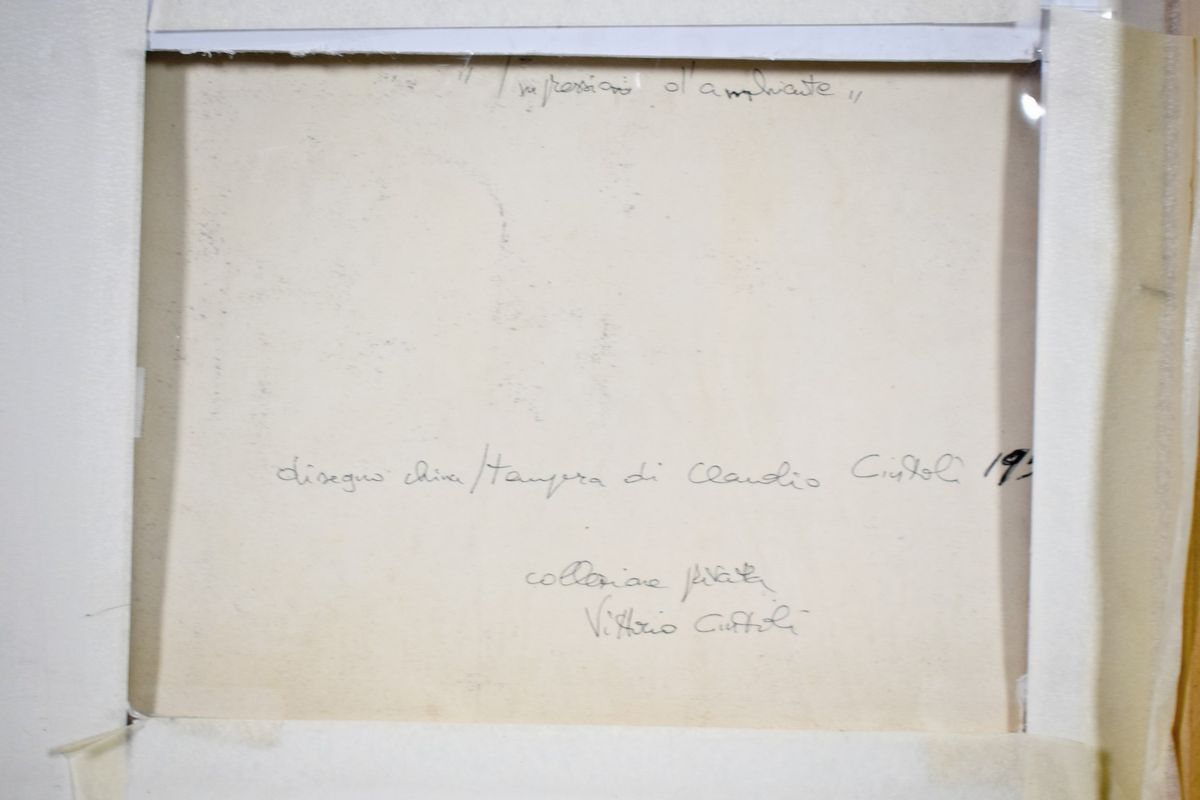 "Impressioni d'ambiente"
disegno china/tempera di Claudio Cintoli 19
collezione privata
Vittorio Cintoli